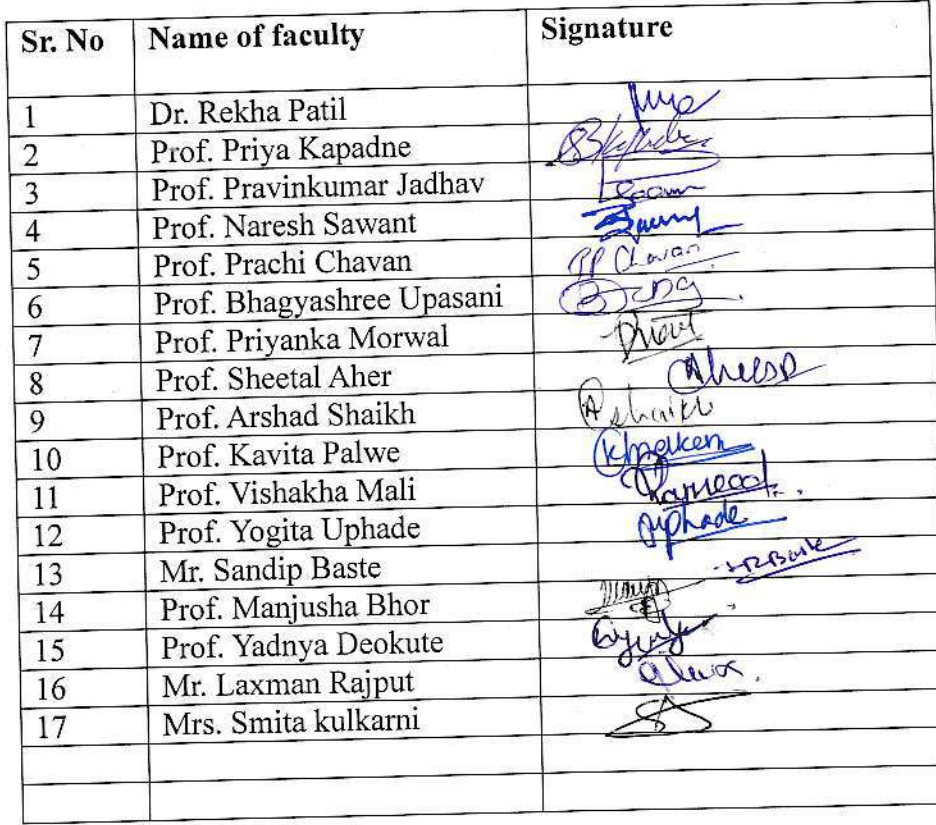 Sr. No Name of faculty Signature
1 Dr. Rekha Patil
2 Prof. Priya Kapadne
3 Prof. Pravinkumar Jadhav
4 Prof. Naresh Sawant
5 Prof. Prachi Chavan PP Chavan
6 Prof. Bhagyashree Upasani
7 Prof. Priyanka Morwal
8 Prof. Sheetal Aher
9 Prof. Arshad Shaikh A shaikh
10 Prof. Kavita Palwe
11 Prof. Vishakha Mali
12 Prof. Yogita Uphade
13 Mr. Sandip Baste
14 Prof. Manjusha Bhor
15 Prof. Yadnya Deokute
16 Mr. Laxman Rajput
17 Mrs. Smita kulkarni